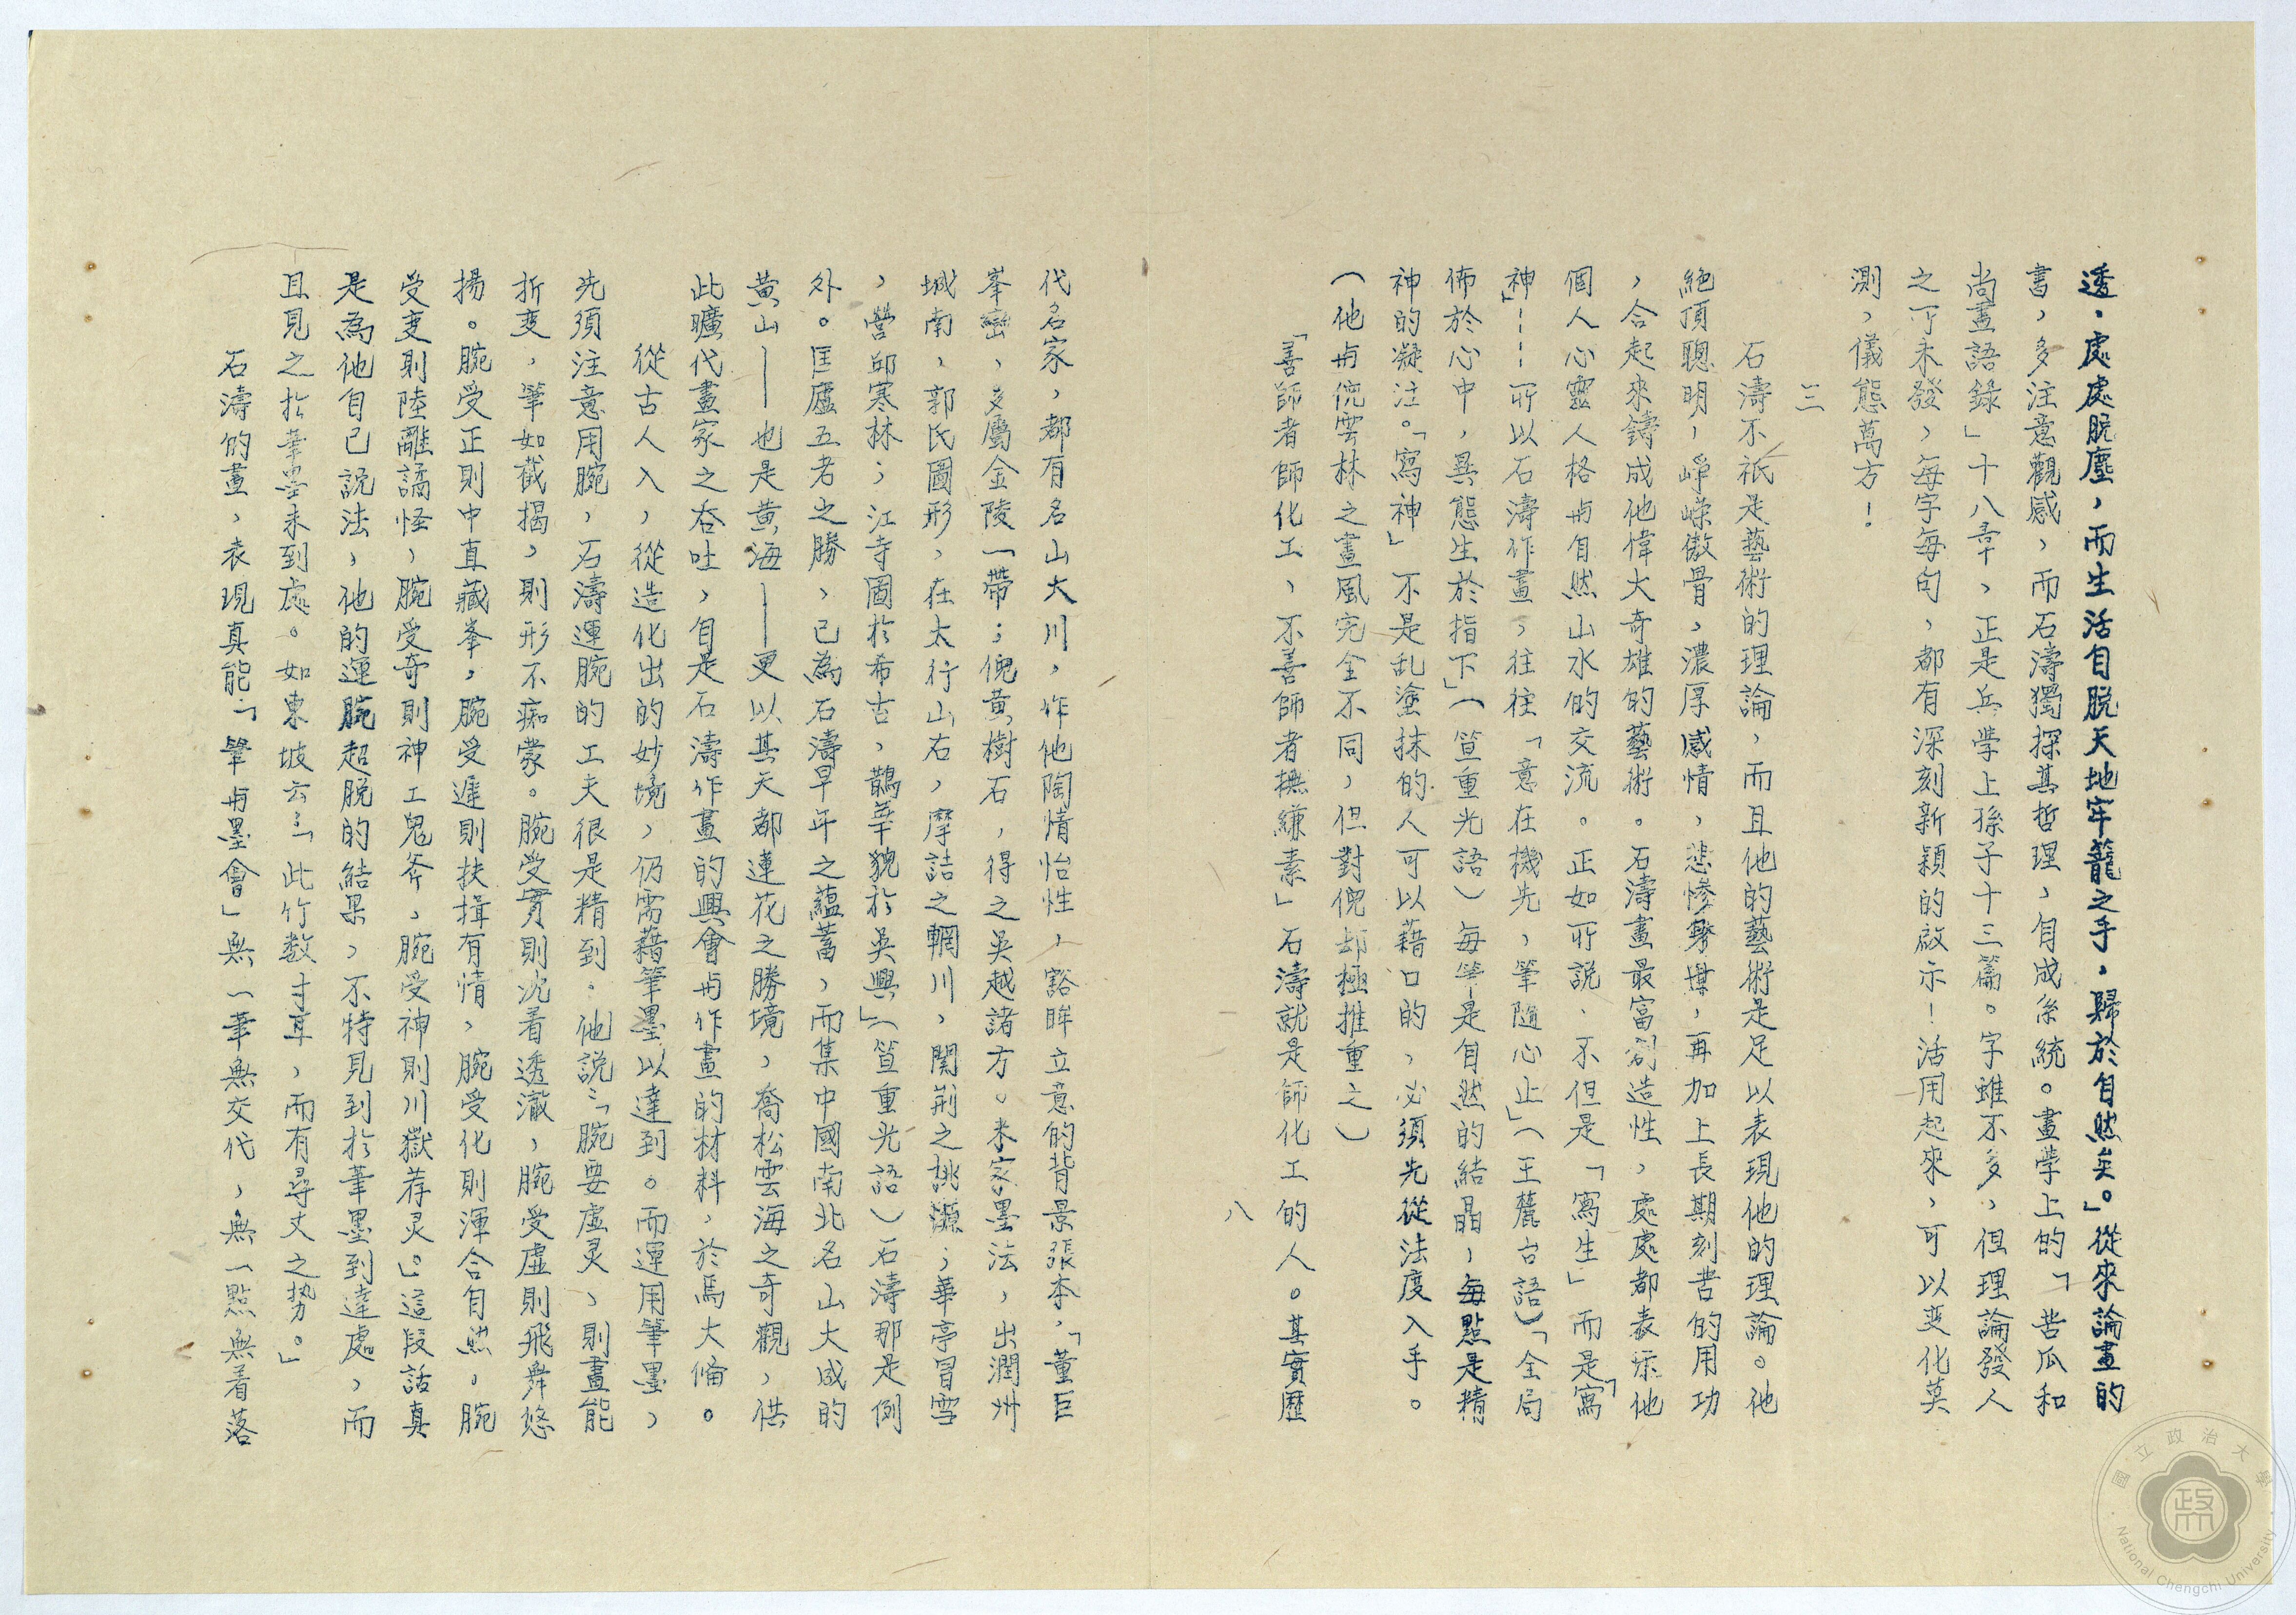 透，處處脱塵，而生活自脱天地牢籠之手，歸於自然矣。」從來論畫的
書，多注意觀感，而石濤獨探其哲理，自成系統。畫學上的「苦瓜和
尚畫語錄」十八章，正是兵學上孫子十三篇。字雖不多，但理論發人
之所未發，每字每句，都有深刻新穎的啟示！活用起來，可以变化莫
測，儀態萬方！
三
石濤不祇是藝術的理論，而且他的藝術是足以表現他的理論。他
絕頂聰明，崢嶸傲骨，濃厚感情，悲慘身世，再加上長期刻苦的用功
，合起來鑄成他偉大奇雄的藝術。石濤畫最富創造性，處處都表示他
個人心靈人格與自然山水的交流。正如所説，不但是「寫生」而是「寫
神」……所以石濤作畫，往往「意在機先，筆隨心止」（王麓台語）「全局
佈於心中，異態生於指下」（笪重光語）每筆是自然的結晶，每點是精
神的凝注。「寫神」不是乱塗抹的人可以藉口的，必須先從法度入手。
（他與倪雲林之畫風完全不同，但對倪却極推重之）
「善師者師化工，不善師者撫縑素」石濤就是師化工的人。其實歷
八
代名家，都有名山大川，作他陶情怡性，豁眸立意的背景張本，「董巨
峯巒，多屬金陵一帶；倪黄樹石，得之吳越諸方。米家墨法，出潤州
城南，郭氏圖形，在太行山右，摩詰之輞川，関荆之桃源；華亭冒雪
，營邱寒林；江寺圖於希古，鵲華貌於吳興」（笪重光語）石濤那是例
外。匡廬五老之勝，已為石濤早年之蘊蓄，而集中國南北名山大成的
黄山——也是黄海——更以其天都蓮花之勝境，喬松雲海之奇觀，供
此曠代畫家之吞吐，自是石濤作畫的興會與作畫的材料，於焉大備。
從古人入，從造化出的妙境，仍需藉筆墨以達到。而運用筆墨，
先須注意用腕，石濤運腕的工夫很是精到。他説：「腕要虚灵，則畫能
折变，筆如截揭，則形不痴蒙。腕受實則沈着透澈，腕受虚則飛舞悠
揚。腕受正則中直藏峯，腕受遲則扶揖有情，腕受化則渾合自然，腕
受变則陸離譎怪，腕受奇則神工鬼斧，腕受神則川嶽荐灵。」這段話真
是為他自己説法，他的運腕超脱的結果，不特見到於筆墨到達處，而
且見之於筆墨未到處。如東坡云：「此竹数寸耳，而有尋丈之势。」
石濤的畫，表現真能：「筆與墨會」無一筆無交代，無一點無着落
國立政治大學
National Chengchi University